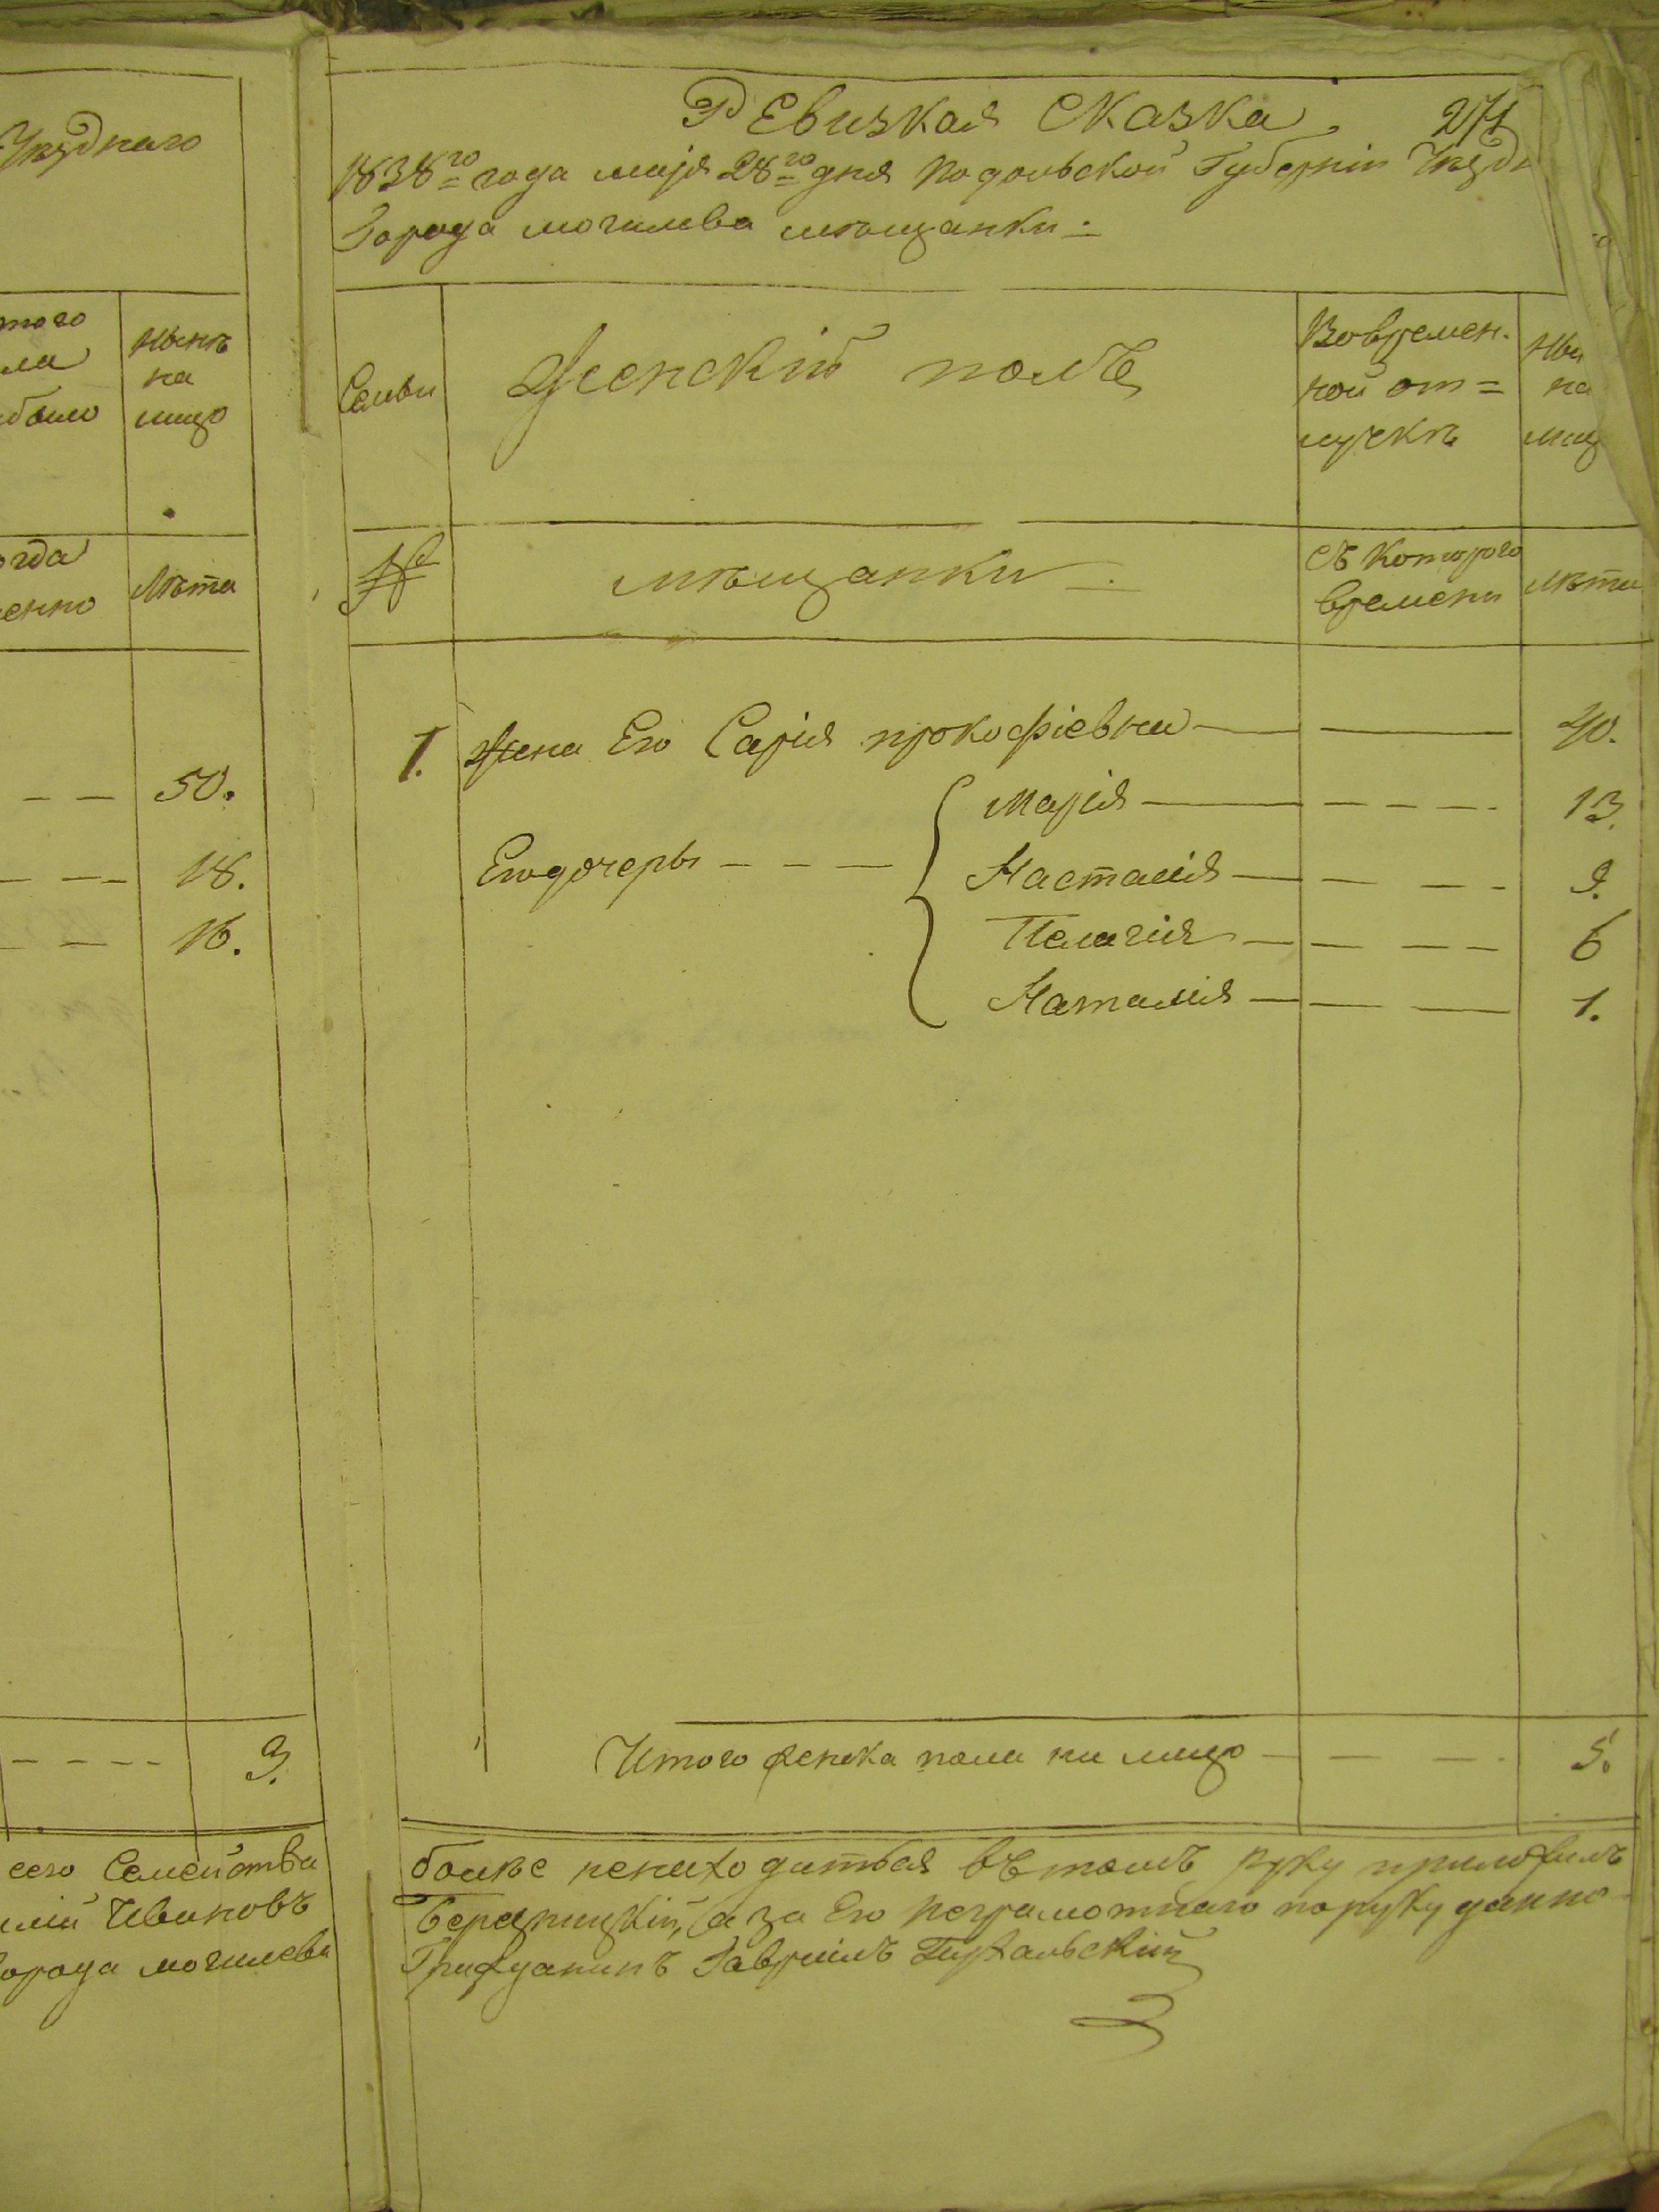 Уѣзднаго
того
ла
было
Нынѣ
на
лицо
огда
енно
Лѣта
50.
18.
16.
3.
сего Семейства
лій Ивановъ
города могилева
271
РЕвизкая СКазка
1838го года маія 28го дня Подольской Губерніи Уѣздн
Города могилева мѣщанки
Семьи
Женскій полъ
Вовремен-
ной от=
лучкѣ
Ны
на
лиц
№
мѣщанки
Съ Которого
времени
лѣта
1. Жена Его Сарія прокофіевна 40.
Марія 13.
Его дочеры
Настасія 9.
Пелагия 6
Наталия 1.
Итого женска пола на лицо 5.
болѣе ненаходитьея въ томъ руку приложилъ
а за Его неграмотнаго поруку данно
Гражданинъ Гавріилъ